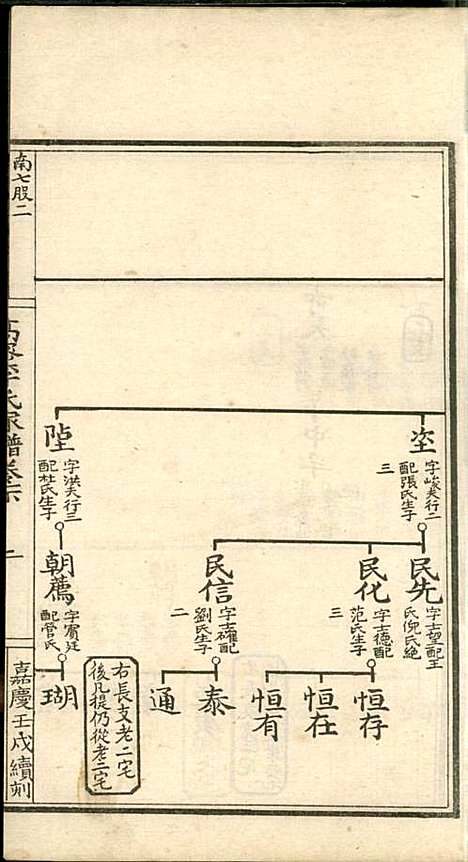 坙
字峻夫行二
配張氏生子
三
陞
字洪夫行三
配杜氏生子
民先
字士望配王
氏倪氏絶
民化
字士德配
范氏生子
三
民信
字士確配
劉氏生子
二
朝薦
字賓廷
配管氏
恒存
恒在
恒有
泰
通
瑚
右長支老二宅
後凡提仍從老二宅
南七股二
李氏家譜卷六
嘉慶壬戌續刻